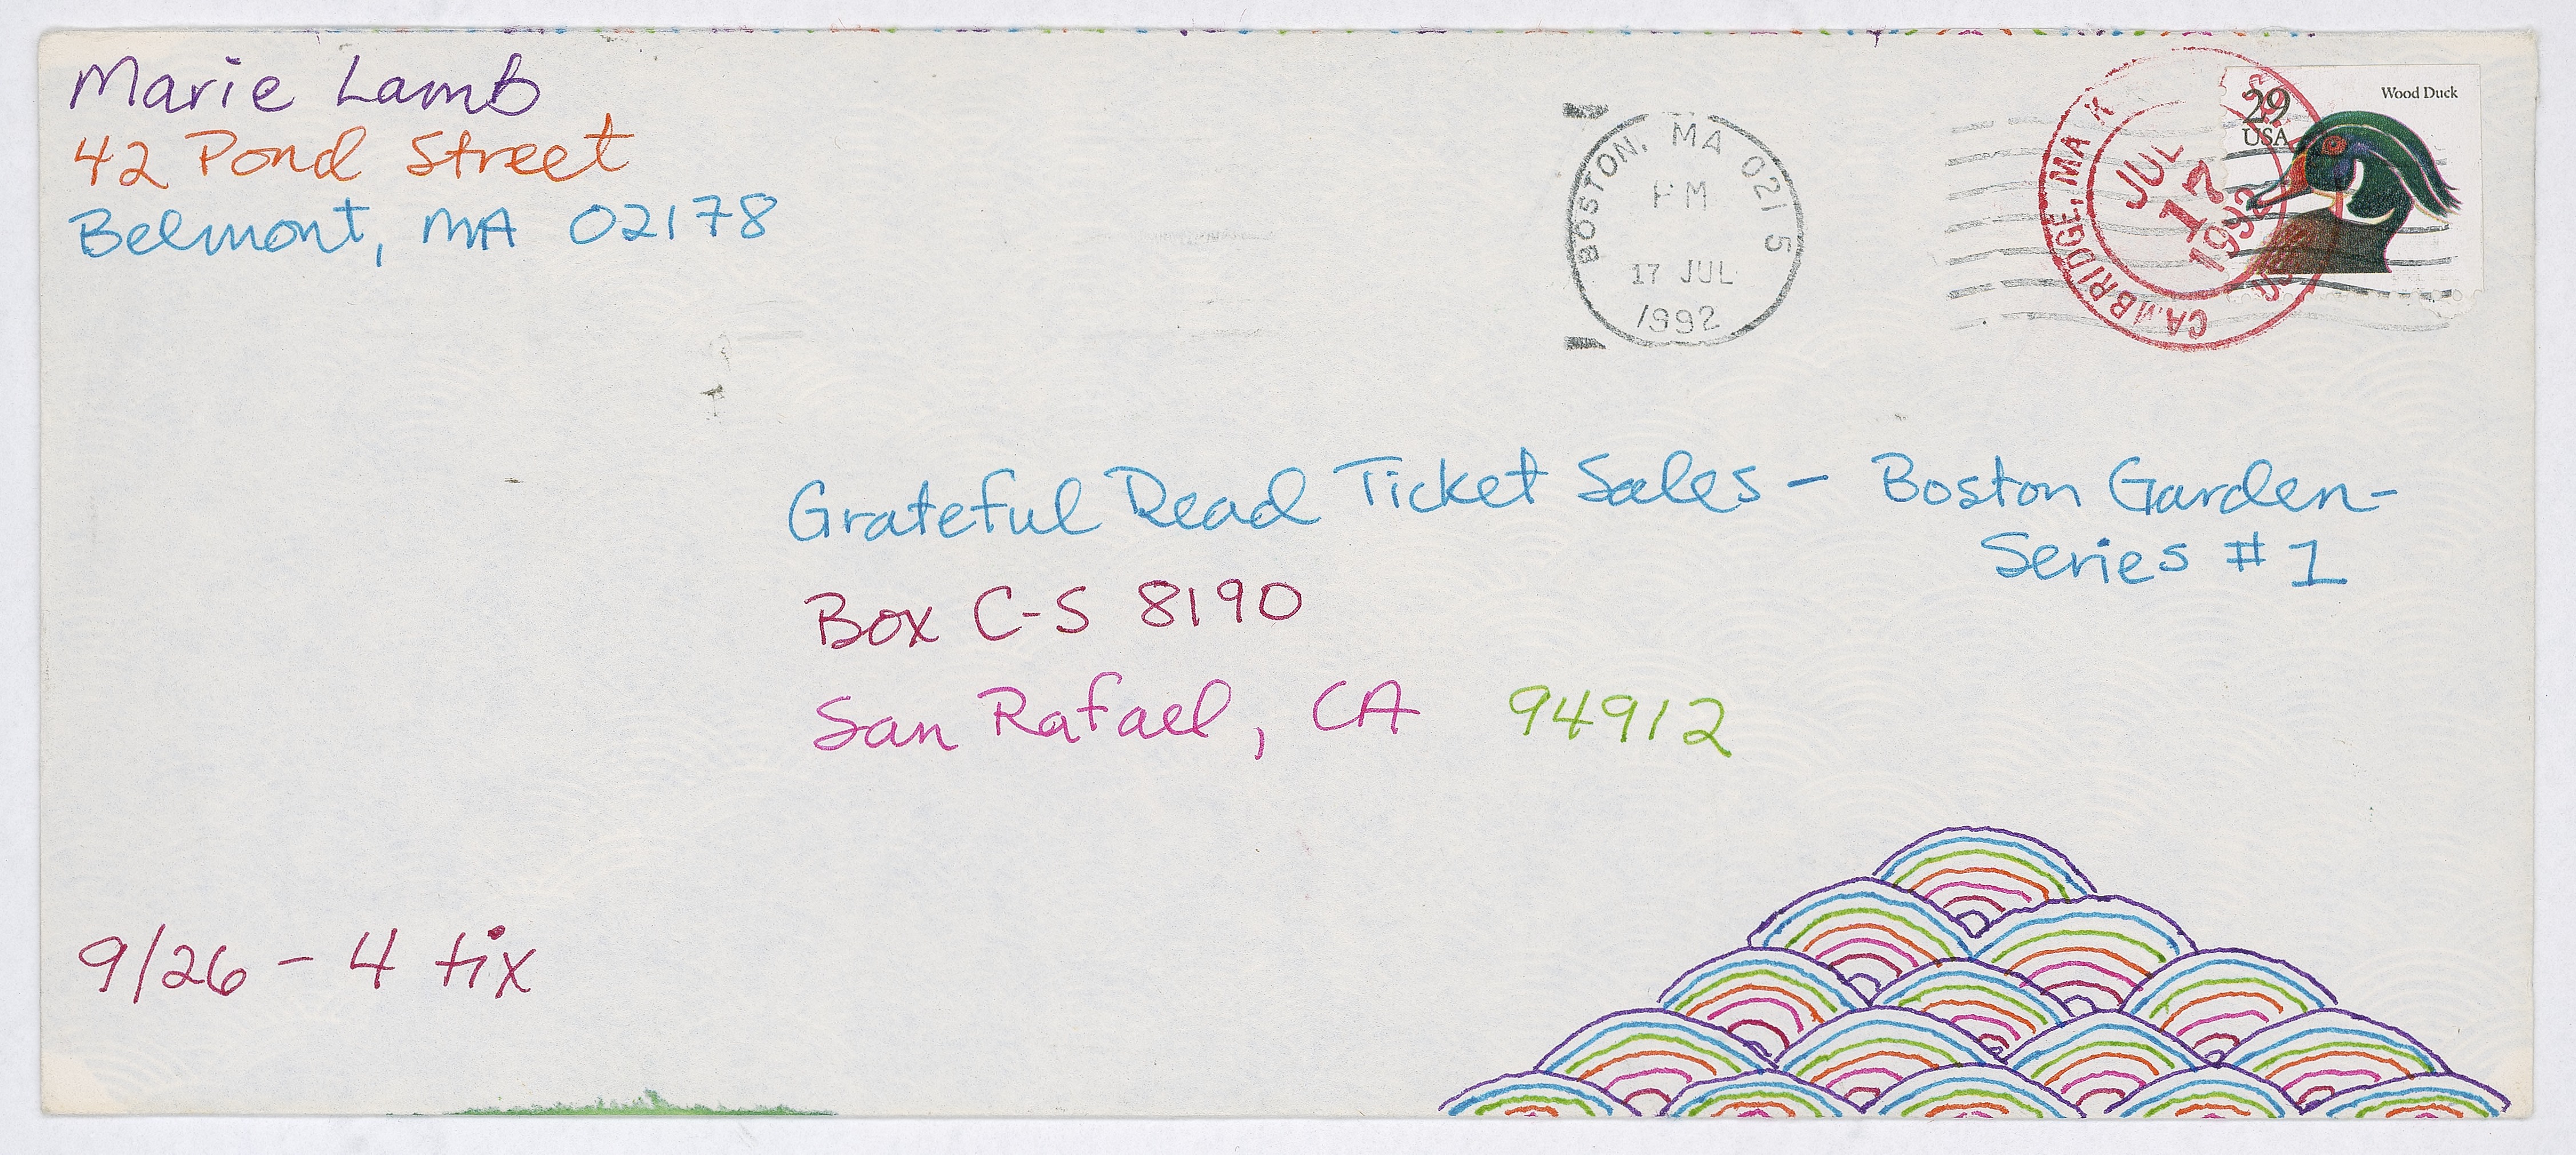 Marie Lamb
42 Pond Street
Belmont, MA 02178
BOSTON, MA 021 5
PM
17 JUL
1992
CAMBRIDGE, MA
JUL
17
1992
29
USA
Wood Duck
Grateful Dead Ticket Sales - Boston Garden-
Series #1
Box C-S 8190
San Rafael, CA 94912
9/26 - 4 tix